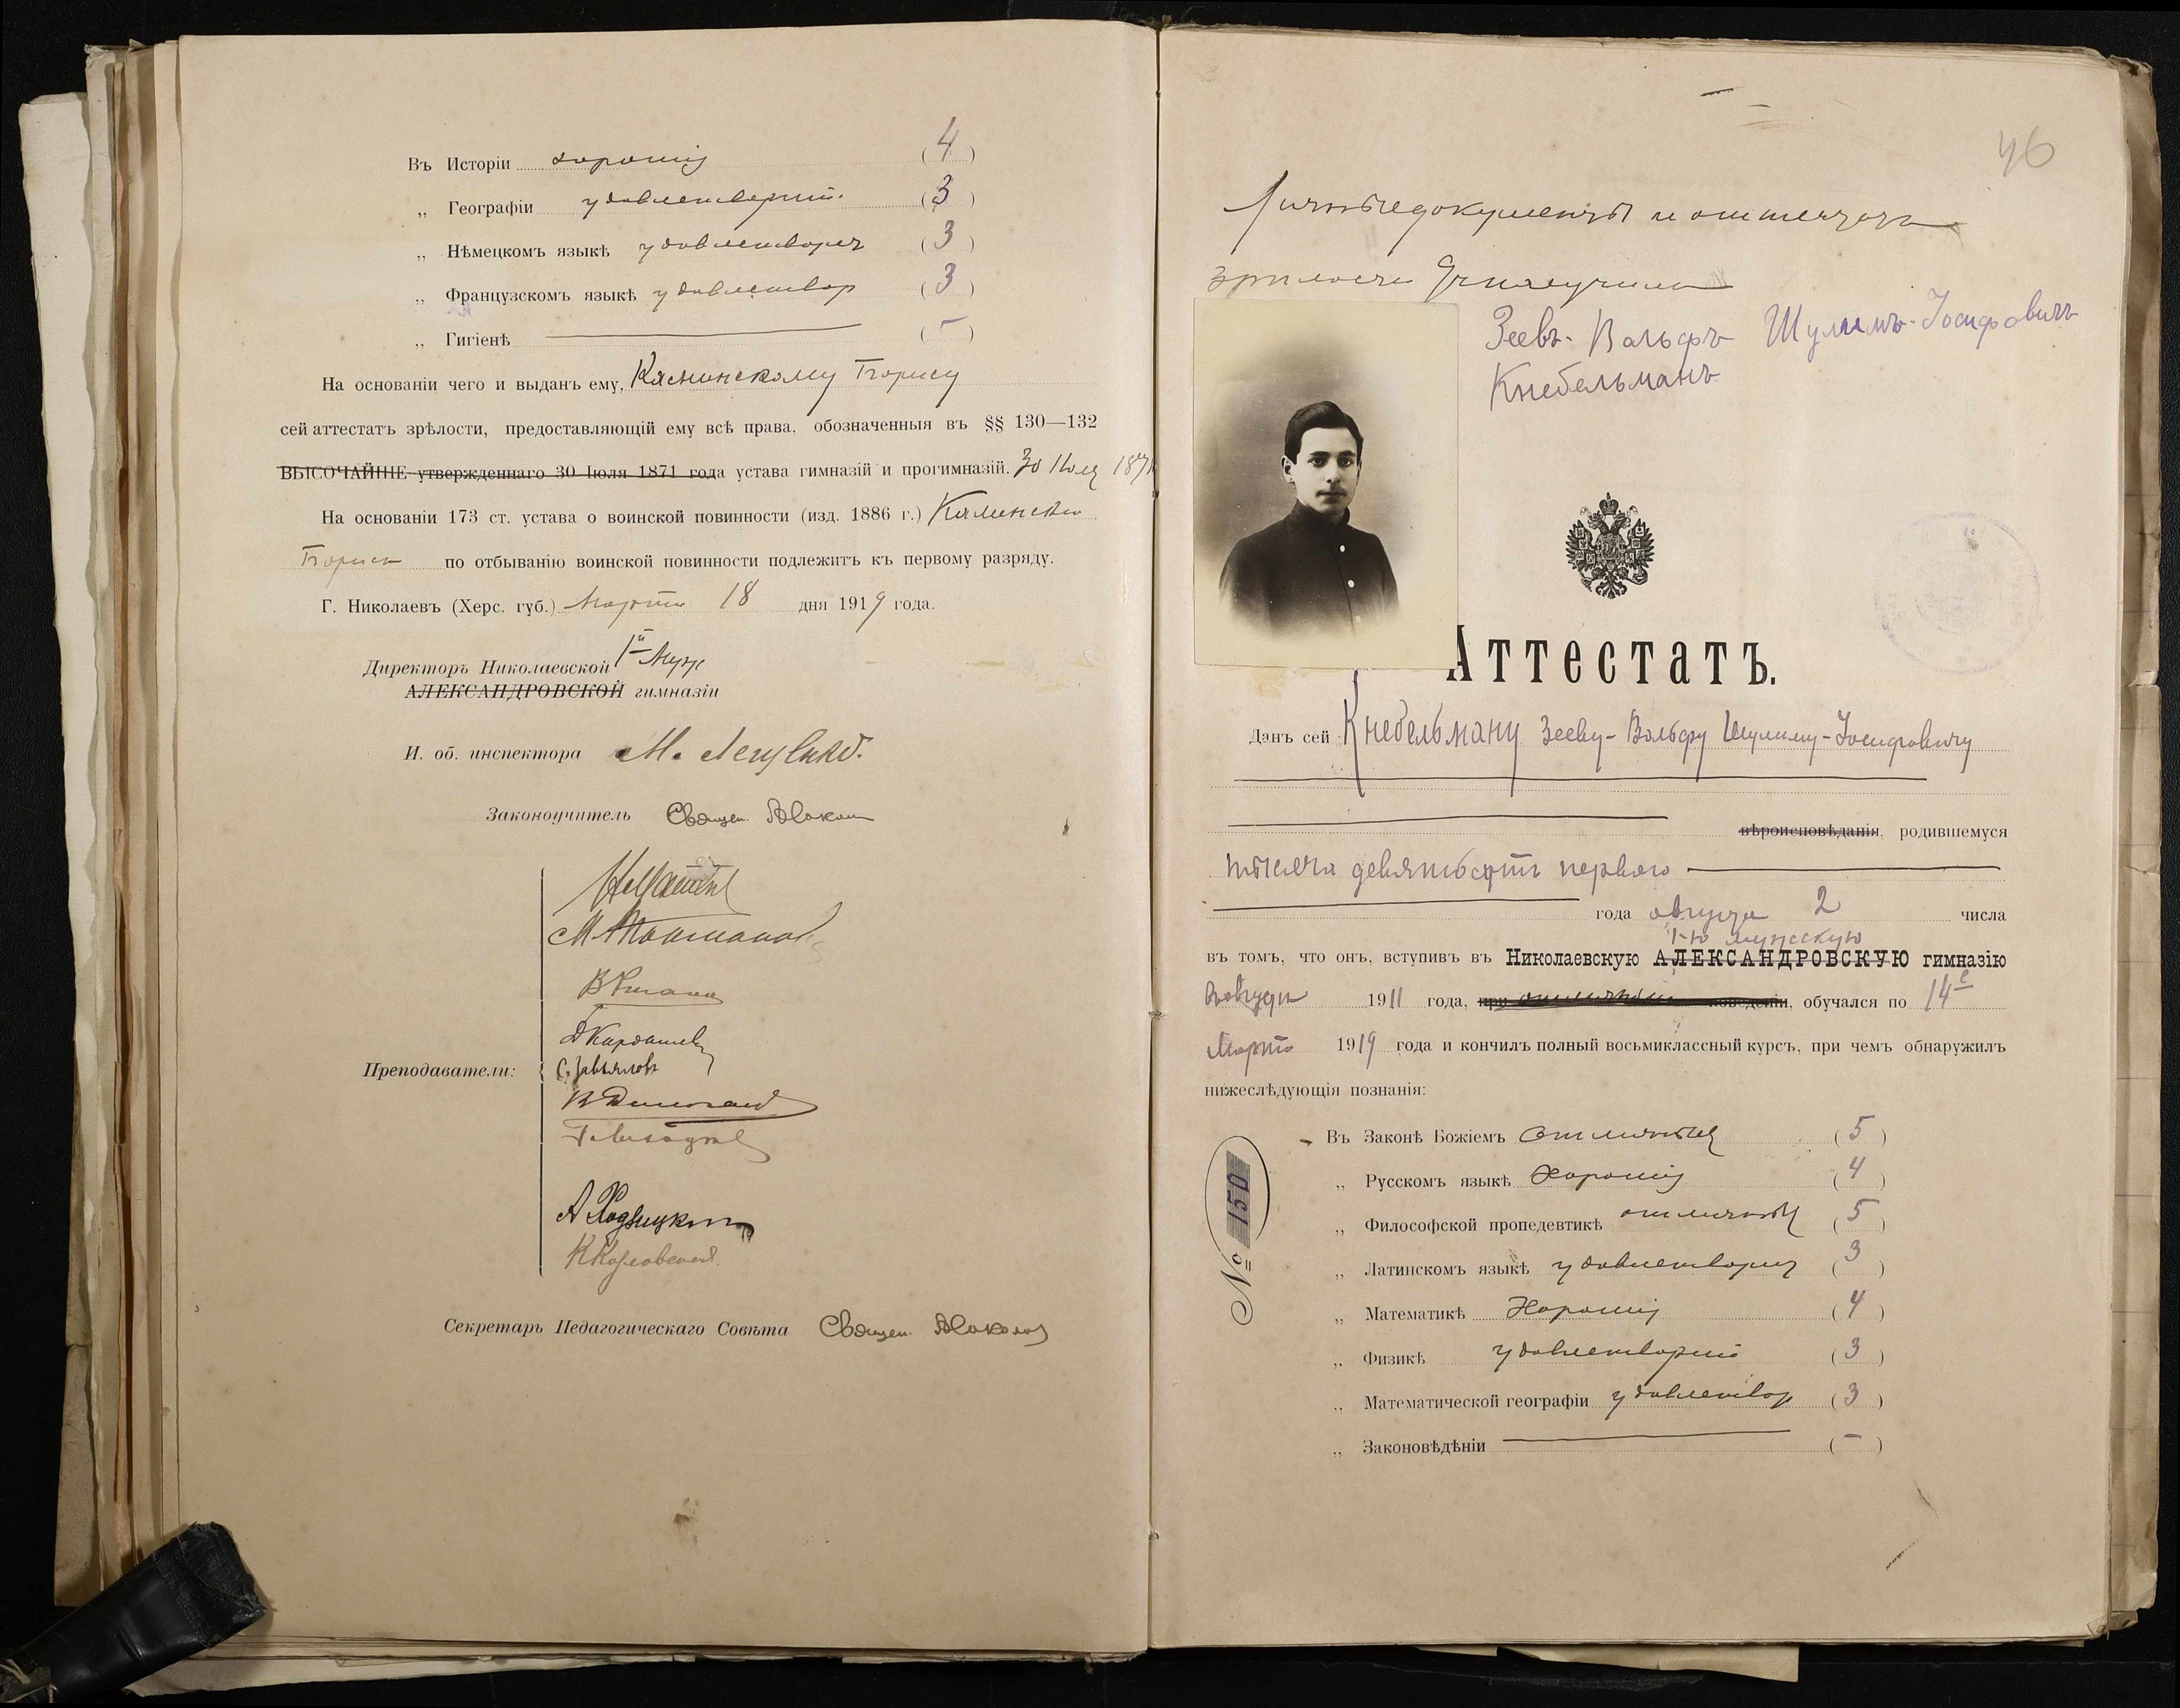 Въ Исторіи хорошія (4)
„ Географіи удовлетворит. (3)
„ Нѣмецкомъ языкѣ удовлетвор (3)
„ Французскомъ языкѣ удовлетвор (3)
„ Гигіенѣ (–)
На основаніи чего и выданъ ему, Борису
сей аттестатъ зрѣлости, предоставляющій ему всѣ права, обозначенныя въ §§ 130—132
ВЫСОЧАЙШЕ утвержденнаго 30 Іюля 1871 года устава гимназій и прогимназій. 30 Іюля 1871
На основаніи 173 ст. устава о воинской повинности (изд. 1886 г.)
Борисъ по отбыванію воинской повинности подлежитъ къ первому разряду.
Г. Николаевъ (Херс. губ.) Марта 18 дня 1919 года.
Директоръ Николаевской 1й Муж
АЛЕКСАНДРОВСКОЙ гимназіи
И. об. инспектора М.
Законоучитель Священ.
Преподаватели:
С. Завьяловъ
Секретарь Педагогическаго Совѣта Священ.
46
Личные документы и аттестатъ
зрѣлости получилъ
Зеевъ-Вольфъ Шулимъ-Іосифовичъ
Кнебельманъ
Аттестатъ.
Данъ сей Кнебельману Зееву-Вольфу Шулиму-Іосифовичу
вѣроисповѣданія, родившемуся
тысяча девятьсотъ перваго
года августа 2 числа
1-ю мужскую
въ томъ, что онъ, вступивъ въ Николаевскую АЛЕКСАНДРОВСКУЮ гимназію
августа 1911 года, при отличномъ поведеніи, обучался по 14е
Марта 1919 года и кончилъ полный восьмиклассный курсъ, при чемъ обнаружилъ
нижеслѣдующія познанія:
Въ Законѣ Божіемъ отличныя (5)
„ Русскомъ языкѣ хорошія (4)
„ Философской пропедевтикѣ отличныя (5)
„ Латинскомъ языкѣ удовлетвор (3)
„ Математикѣ хорошія (4)
„ Физикѣ удовлетворит (3)
„ Математической географіи удовлетвор (3)
„ Законовѣдѣніи (–)
№ 150